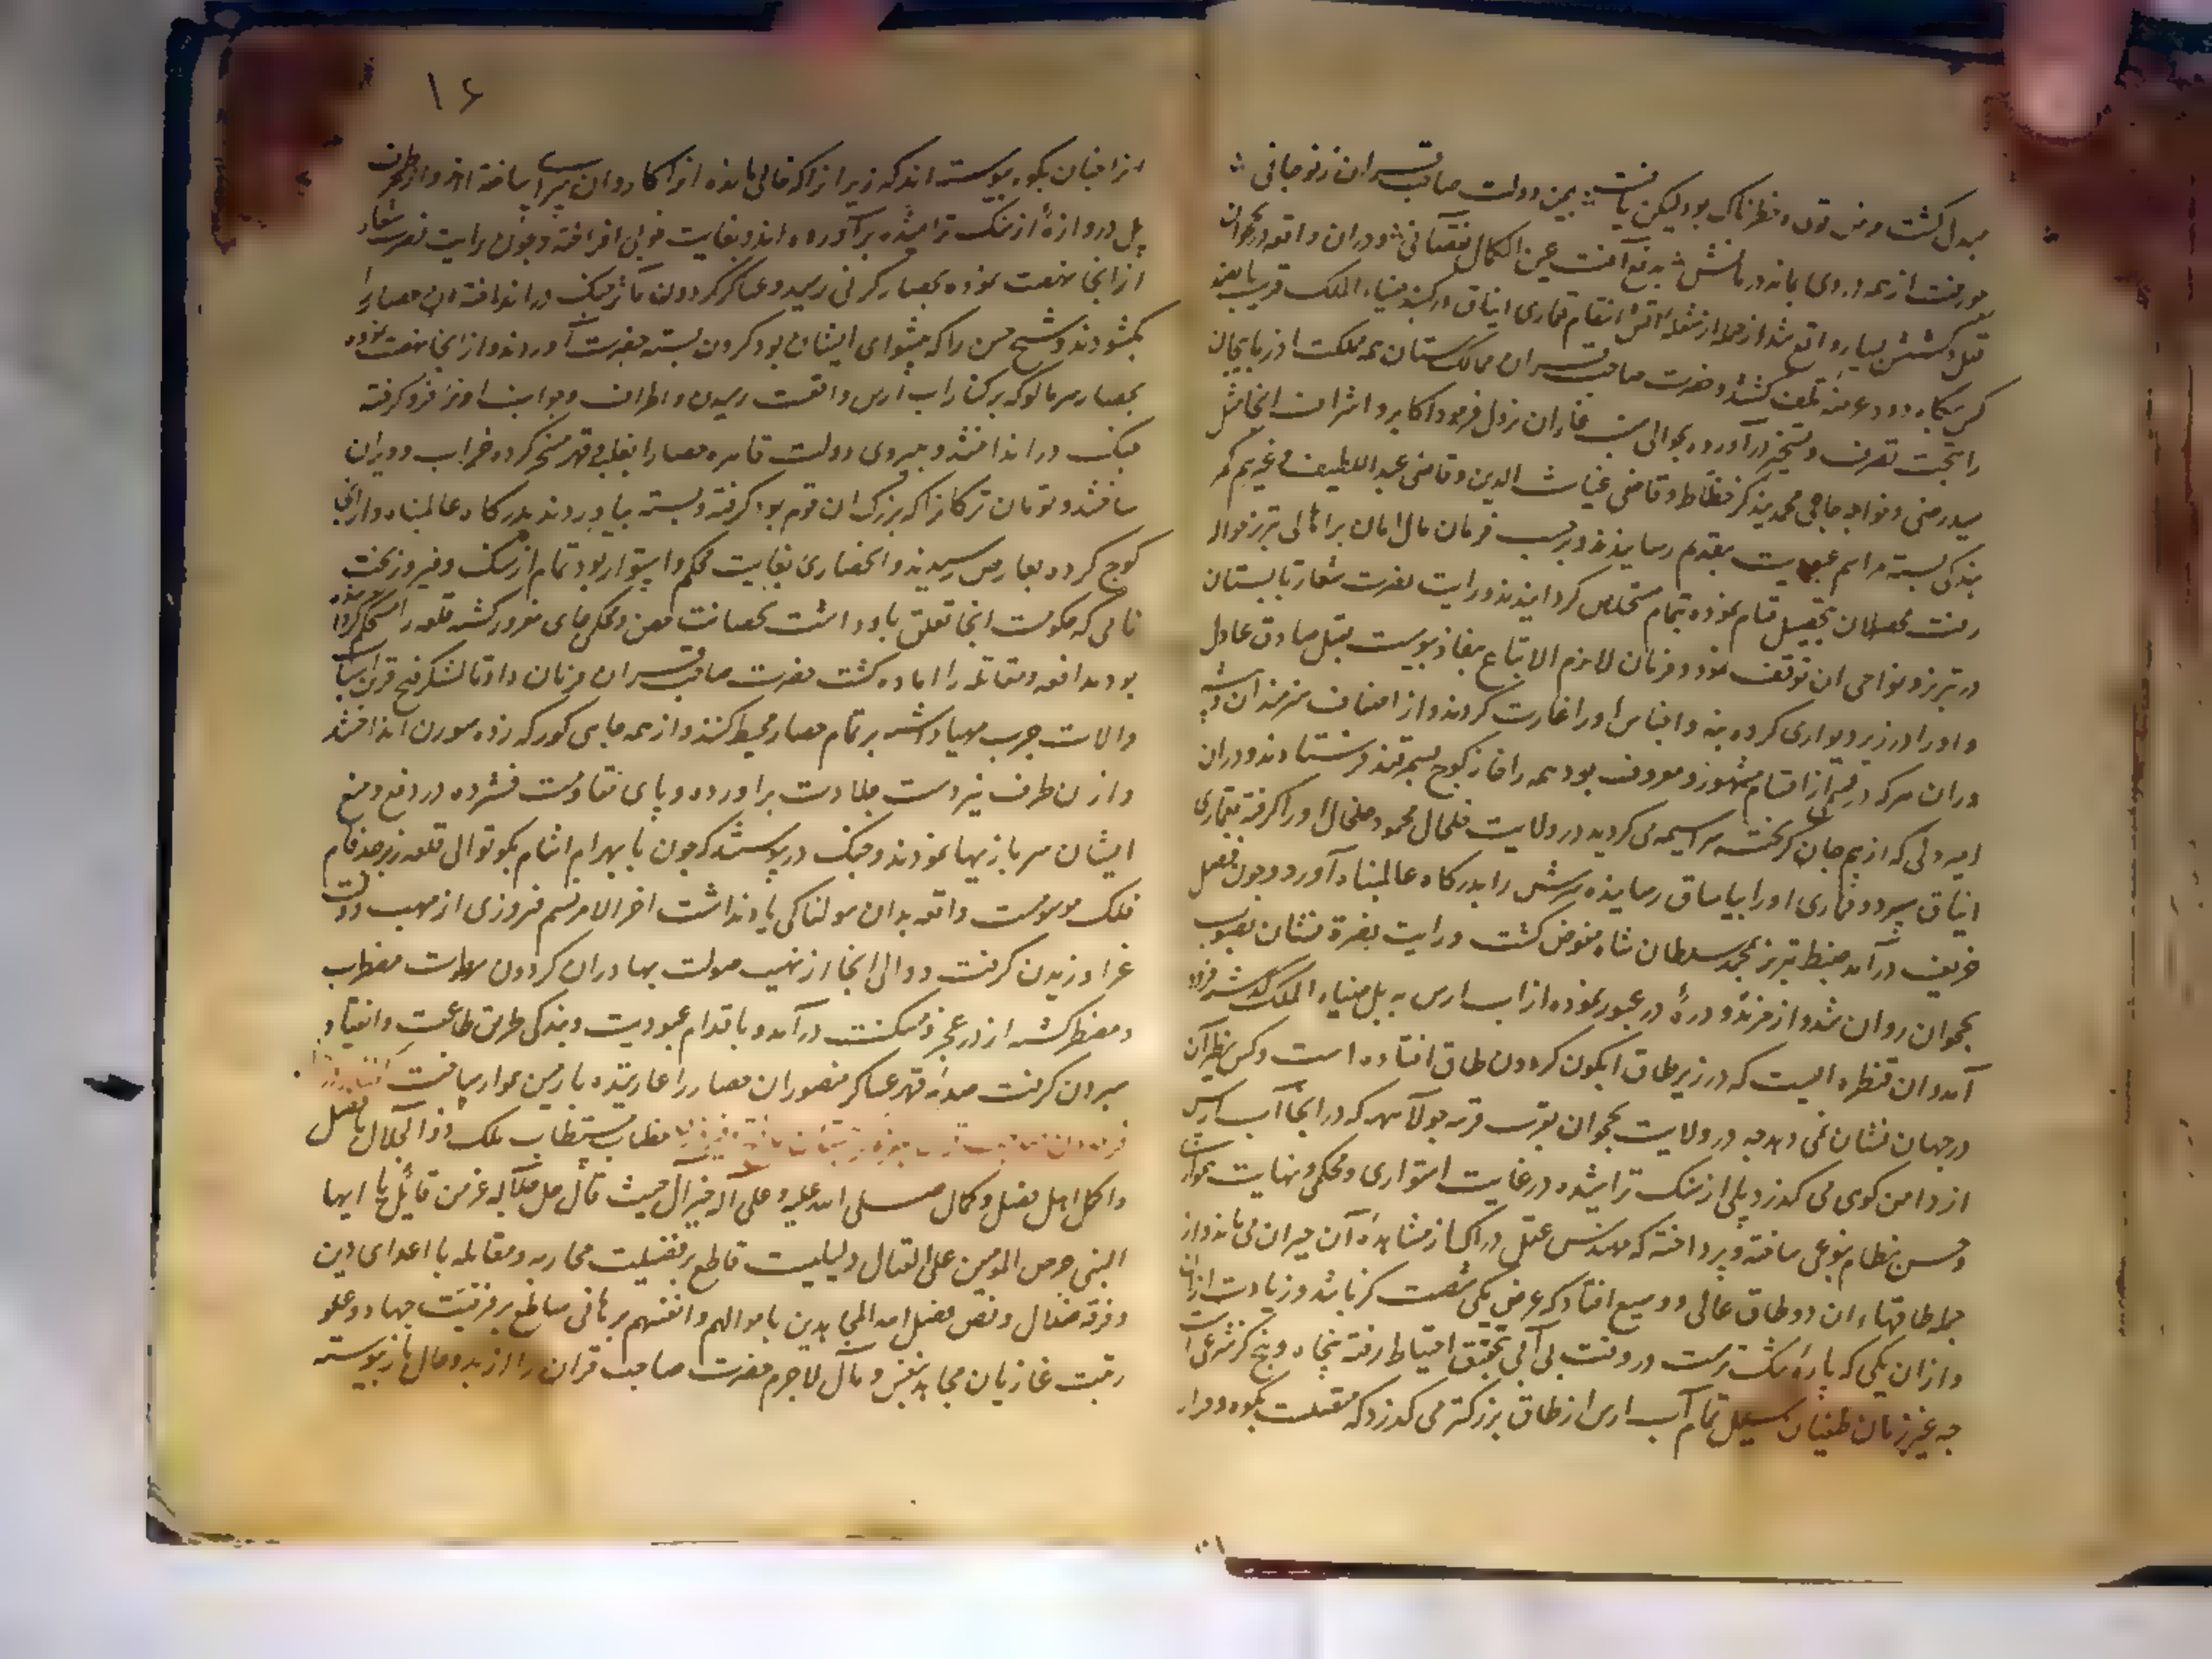 مبدل کشت مرض قوی و خطرناک بود لیکن یافت بیمن دولت صاحب قران نوجانی
عورفت از همه دردی بماند درمانش بدفع آفت عین الکمال نقصانی و دران واقعه در نخجوان
قتل و کشش بسیار واقع شد از جمله از شعله آتش انتقام قماری ایناق در کنبد ضیاء الملک قریب پانصد
کس بکاه دود عرضه تلف کشتند و حضرت صاحب قران ممالک ستان همه مملکت اذربایجان
را بتحت تصرف و تسخیر درآورده بحوالی شنب غازان نزول فرمود اکابر و اشراف انجا مثل
سید رضی و خواجه حاجی محمد بندکیر خطاط و قاضی غیاث الدین و قاضی عبد اللطیف و غیرهم کمر
بندکی بسته مراسم عبودیت بتقدیم رسانیدند و برحسب فرمان مال امان بر اهالی تبریز حواله
رفت محصلان بتحصیل قیام نموده بتمام مستخلص کردانیدند و رایت نصرت شعار تابستان
در تبریز و نواحی ان توقف نمود و فرمان لازم الاتباع بنفاذ پیوست بقتل صادق عادل
و او را در زیر دیواری کرده بنه و اجناس او را غارت کردند و از اصناف هنرمندان و پیشه
وران هرکه در قسمی از اقسام مشهور و معروف بود همه را خانه کوچ بسمرقند فرستادند و دران
امیر ولی که از بیم جان کریخته سراسیمه می کردید در ولایت خلخال محمود خلخالی او را کرفته بقماری
ایناق سپرد و قماری او را بیاساق رسانیده سرش را بدرکاه عالم پناه آورد و چون فصل
خریف درآمد ضبط تبریز بمحمد سلطان شاه مفوض کشت و رایت نصرة نشان بصوب
نخجوان روان شد و از مرند و درۀ در عبور نموده از اب ارس به پل ضیاء الملک کذشته فرود
آمد و ان قنطره ایست که در زیر طاق ابکون کردون طاق افتاده است و کس نظیر آن
در جهان نشان نمی دهد چه در ولایت نخجوان بقرب قریه جولاهه که در انجا آب ارس
از دامن کوی می کذرد پلی از سنک تراشیده در غایت استواری و محکمی و نهایت همواری
و حسن نظام بنوعی ساخته و پرداخته که مهندس عقل دراک از مشاهده آن حیران می ماند و از
جمله طاقهاء ان دو طاق عالی و وسیع افتاد که عرض یکی شصت کز باشد و زیادت ازان
و ازان یکی که پارۀ تنک ترست در وقت بی آبی بتحقیق احتیاط رفته پنجاه و پنج کز شرعی است
چه غیر زمان طغیان سیل تمام آب ارس از طاق بزرکتر می کذرد که متصلست بکوه و مرار
۱۶
انرا چنان بکوه پیوسته اند که زیر انرا که خالی مانده انرا کاروان سرا ساخته اند و از طرف
پل دروازۀ از سنک تراشیده برآورده اند و بغایت خوبی افراخته و چون رایت نصرت شعار
از انجا نهضت نموده بحصار کرنی رسید و عساکر کردون مآثر جنک در انداخته ان حصار را
بکشودند و شیخ حسن را که پیشوای ایشان بود کردن بسته بحضرت آوردند و از انجا نهضت نموده
بحصار سرمالو که بر کنار اب ارس واقعست رسیدن و اطراف و جوانب او فرو کرفته
جنک در انداختند و بنیروی دولت قاهره حصار را بغلبه و قهر مسخر کرده خراب و ویران
ساختند و تومان ترکمانرا که بزرک ان قوم بود کرفته و بسته بیاوردند بدرکاه عالم پناه و از انجا
کوچ کرده بقارص رسیدند و انحصاری بغایت محکم و استوار بود تمام از سنک و فیروز بخت
نامی که حکومت انجا تعلق باو داشت بحصانت حصن و محکمی جای مغرور کشته قلعه را محکم کردانیده
بود مدافعه و مقاتله را اماده کشت حضرت صاحب قران فرمان داد تا لشکر فتح قرین اسباب
و الات حرب مهیا داشته بر تمام حصار محیط کشتند و از همه جای کورکه زده سورن انداختند
و از ان طرف نیز دست جلادت براورده و پای مقاومت فشرده در دفع و منع
ایشان سربازیها نمودند و جنک در پیوستند که چون تا بهرام انتقام بکوتوالی قلعه زبرجد فام
فلک موسومست واقعه بدان هولناکی یاد نداشت اخر الامر نسیم فیروزی از مهب دولت
غرا وزیدن کرفت و والی انجا از نهیب صولت بهادران کردون مهابت مضطرب
و مضطر کشته از در عجز و مسکنت درآمد و باقدام عبودیت و بندکی طریق طاعت و انقیاد
سپردن کرفت صدمه قهر عساکر منصوران حصار را غارتیده با زمین هموار ساخت
خطاب مستطاب ملک ذو الجلال بافضل
و اکمل اهل فضل و کمال صلی الله علیه و علی آله خیر آل حیث قال جل جلاله عز من قائل یا ایها
النبی حرض المومنین علی القتال دلیلیست قاطع بر فضیلت محاربه و مقاتله با اعدای دین
و فرقه ضلال و نص فضل الله المجاهدین باموالهم و انفسهم برهانی ساطع بر مزیت جهاد و علو
رتبت غازیان مجاهد بنفس و مال لاجرم حضرت صاحب قران را از بدو حال باز پیوسته